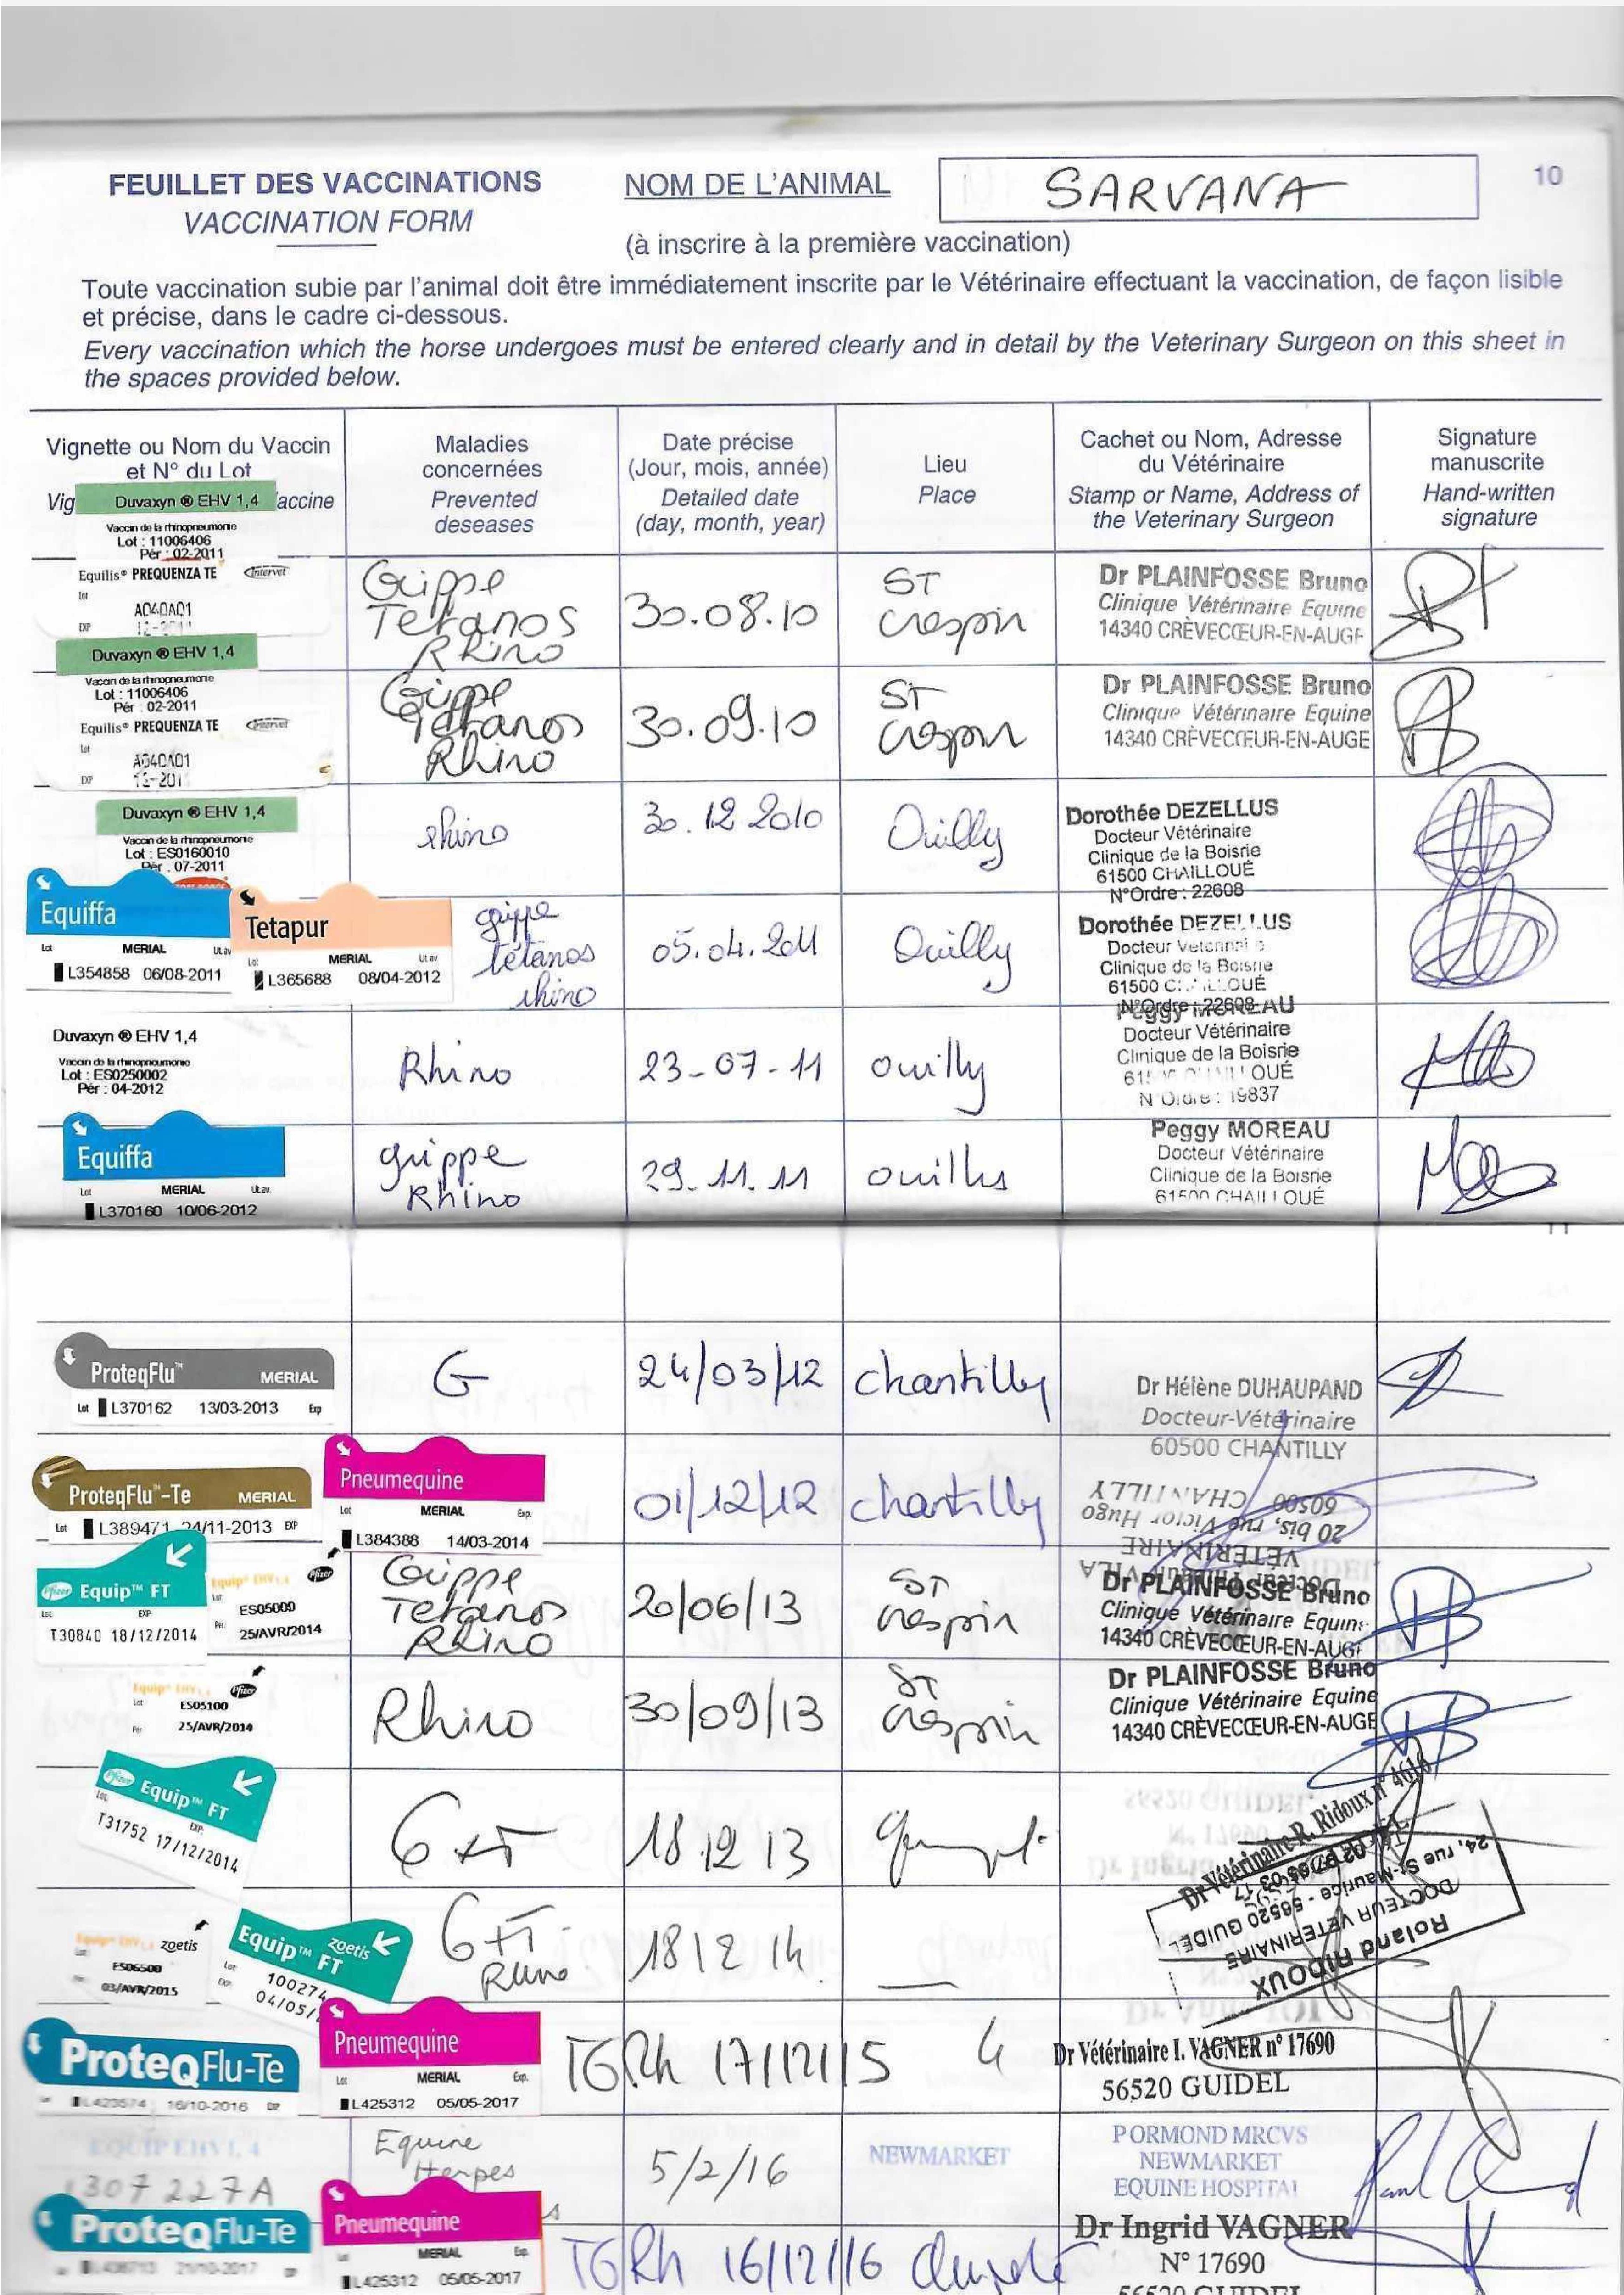 FEUILLET DES VACCINATIONS
VACCINATION FORM
NOM DE L'ANIMAL
SARVANA
10
(à inscrire à la première vaccination)
Toute vaccination subie par l'animal doit être immédiatement inscrite par le Vétérinaire effectuant la vaccination, de façon lisible
et précise, dans le cadre ci-dessous.
Every vaccination which the horse undergoes must be entered clearly and in detail by the Veterinary Surgeon on this sheet in
the spaces provided below.
Vignette ou Nom du Vaccin
et N° du Lot
Vig
accine
Maladies
concernées
Prevented
deseases
Date précise
(Jour, mois, année)
Detailed date
(day, month, year)
Lieu
Place
Cachet ou Nom, Adresse
du Vétérinaire
Stamp or Name, Address of
the Veterinary Surgeon
Signature
manuscrite
Hand-written
signature
Duvaxyn ® EHV 1,4
Vaccin de la rhinopneumonie
Lot : 11006406
Pér : 02-2011
Equilis® PREQUENZA TE
Intervet
Lot
A040A01
EXP
12-2011
Grippe
Tetanos
Rhino
30.08.10
ST
crespin
Dr PLAINFOSSE Bruno
Clinique Vétérinaire Equine
14340 CRÈVECŒUR-EN-AUGE
Duvaxyn ® EHV 1,4
Vaccin de la rhinopneumonie
Lot : 11006406
Pér : 02-2011
Equilis® PREQUENZA TE
Intervet
Lot
A040A01
EXP
12-201
Grippe
Tetanos
Rhino
30.09.10
ST
crespin
Dr PLAINFOSSE Bruno
Clinique Vétérinaire Equine
14340 CRÈVECŒUR-EN-AUGE
Duvaxyn ® EHV 1,4
Vaccin de la rhinopneumonie
Lot : ES0160010
Pér . 07-2011
rhino
30.12 2010
Ouilly
Dorothée DEZELLUS
Docteur Vétérinaire
Clinique de la Boisrie
61500 CHAILLOUÉ
N°Ordre : 22608
Equiffa
Lot MERIAL Ut.av
L354858 06/08-2011
Tetapur
Lot MERIAL Ut.av
L365688 08/04-2012
grippe
tétanos
rhino
05.04.2011
Ouilly
Dorothée DEZELLUS
Docteur Vétérinaire
Clinique de la Boisrie
61500 CHAILLOUÉ
N°Ordre : 22608
Duvaxyn ® EHV 1,4
Vaccin de la rhinopneumonie
Lot : ES0250002
Pér : 04-2012
Rhino
23-07-11
ouilly
Peggy MOREAU
Docteur Vétérinaire
Clinique de la Boisrie
N°Ordre : 19837
Equiffa
Lot MERIAL Ut.av.
L370160 10/06-2012
grippe
Rhino
29.11.11
Peggy MOREAU
Docteur Vétérinaire
Clinique de la Boisrie
61500 CHAILLOUÉ
11
ProteqFlu™ MERIAL
Lot L370162 13/03-2013 Exp
G
24/03/12
chantilly
Dr Hélène DUHAUPAND
Docteur-Vétérinaire
60500 CHANTILLY
ProteqFlu™-Te MERIAL
Lot L389471 24/11-2013 EXP
Pneumequine
Lot MERIAL Exp.
L384388 14/03-2014
01/12/12
chantilly
VILA
VÉTÉRINAIRE
20 bis, rue Victor Hugo
60500 CHANTILLY
Pfizer Equip™ FT
Lot: EXP:
T30840 18/12/2014
Equip® EHV 1,4
Pfizer
Lot
ES05000
Per.
25/AVR/2014
Grippe
Tetanos
Rhino
20/06/13
ST
crespin
Dr PLAINFOSSE Bruno
Clinique Vétérinaire Equine
14340 CRÈVECŒUR-EN-AUGE
Equip® EHV 1,4
Pfizer
Lot
ES05100
Per
25/AVR/2014
Rhino
30/09/13
ST
crespin
Dr PLAINFOSSE Bruno
Clinique Vétérinaire Equine
14340 CRÈVECŒUR-EN-AUGE
Pfizer Equip™ FT
Lot: EXP:
T31752 17/12/2014
G+T
18 12 13
Dr Vétérinaire R. Ridoux n° 4616
Roland RIDOUX
DOCTEUR VETERINAIRE
24, rue St-Maurice - 56520 GUIDEL
Equip® EHV 1,4
zoetis
ES06500
03/AVR/2015
Equip™ FT
zoetis
Lot:
EXP:
100274
04/05/
G+T
18 12 14
ProteqFlu-Te
16/10-2016
Pneumequine
Lot MERIAL Exp.
L425312 05/05-2017
TGRh
17/12/15
Dr Vétérinaire I. VAGNER n° 17690
56520 GUIDEL
EQUIP EHV 1, 4
307 227A
Equine
Herpes
5/2/16
NEWMARKET
P ORMOND MRCVS
NEWMARKET
EQUINE HOSPITAL
ProteqFlu-Te
21/10-2017
Pneumequine
MERIAL
L425312 05/05-2017
TGRh
16/12/16
Dr Ingrid VAGNER
N° 17690
56520 GUIDEL